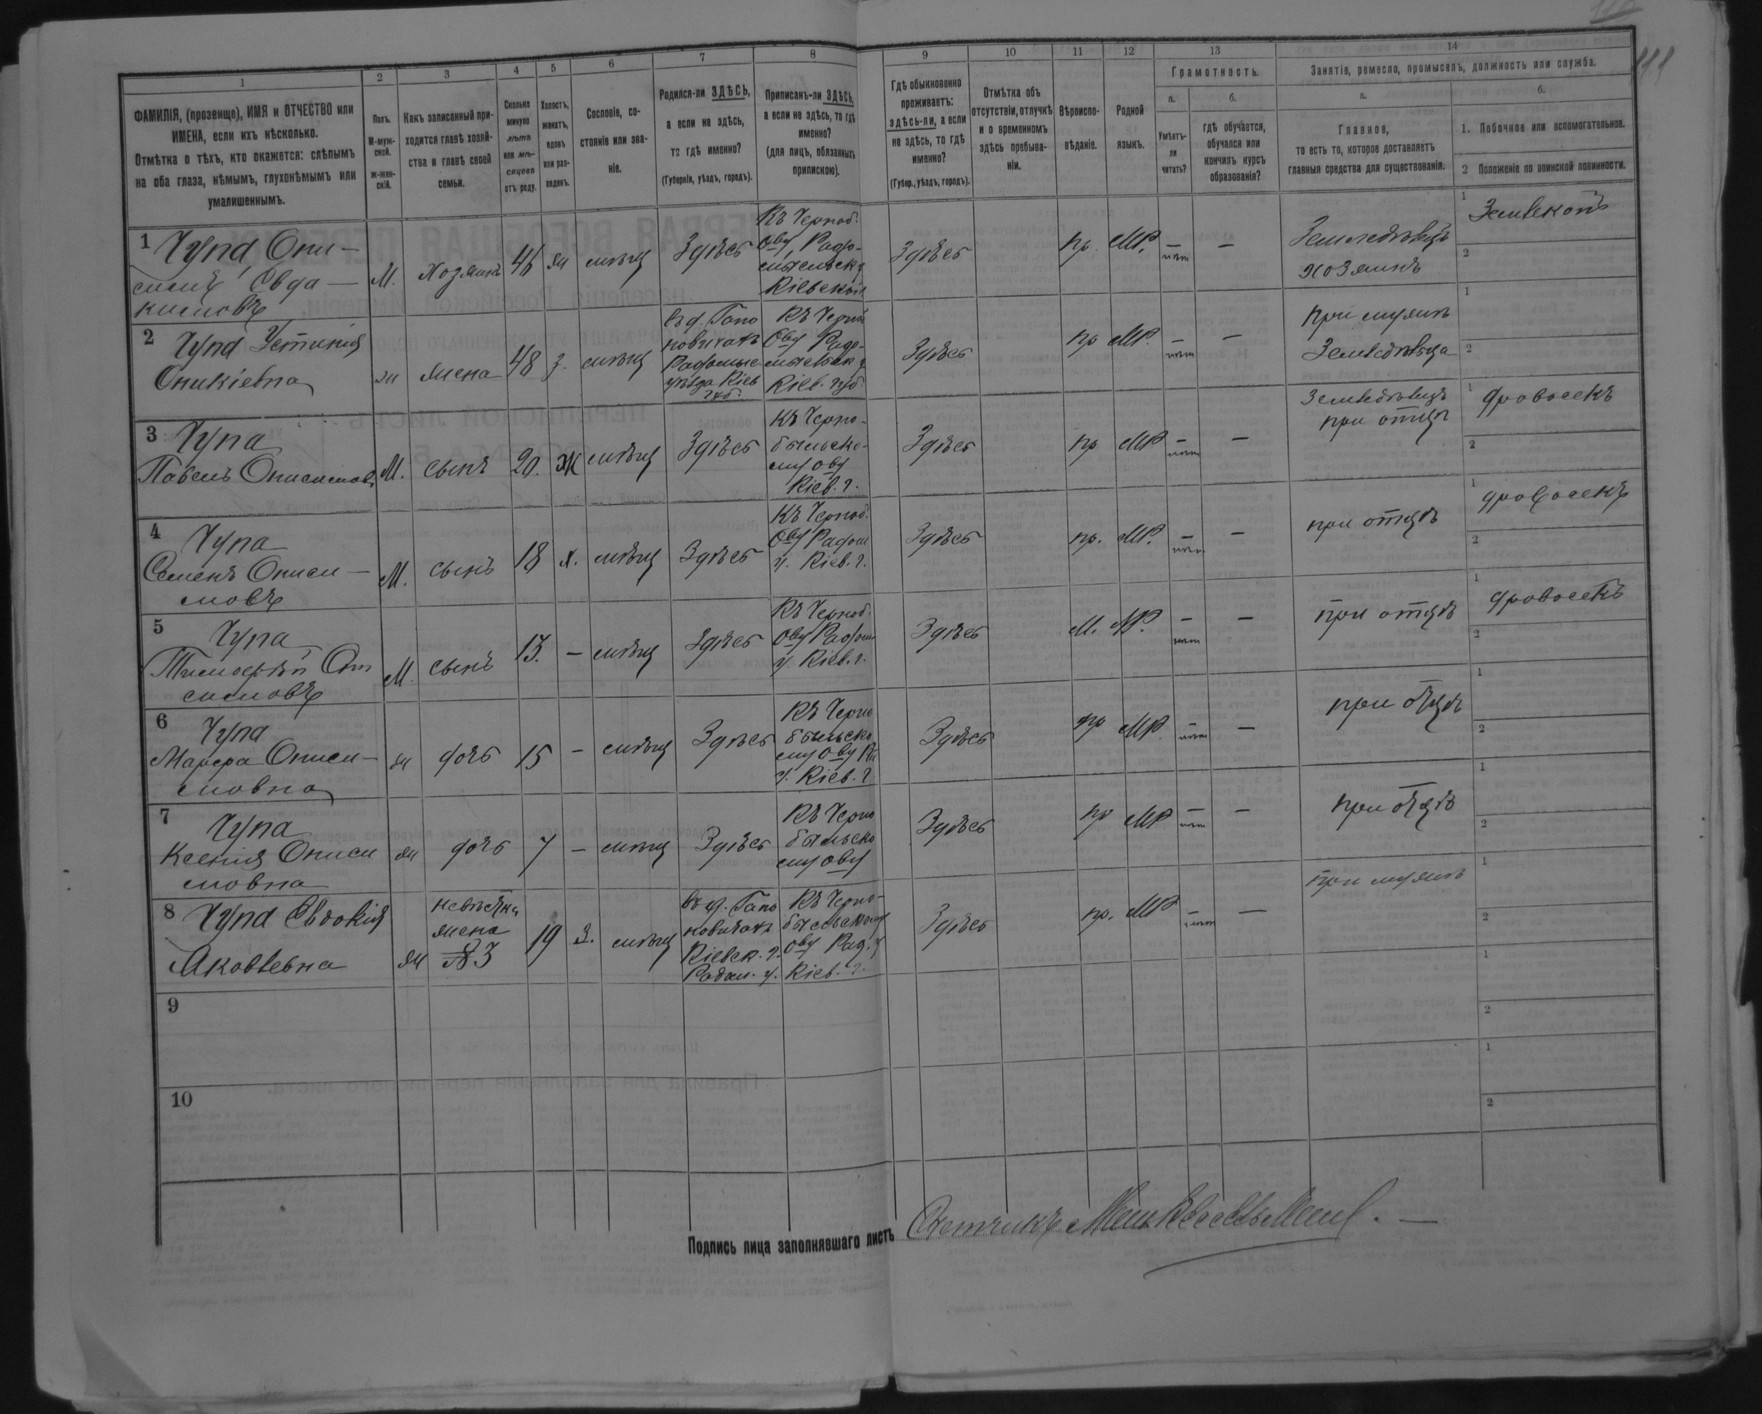 1 2 3 4 5 6 7 8 9 10 11 12 13 14
ФАМИЛІЯ, (прозвище), ИМЯ и ОТЧЕСТВО или
ИМЕНА, если ихъ нѣсколько.
Отмѣтка о тѣхъ, кто окажется: слѣпымъ
на оба глаза, нѣмымъ, глухонѣмымъ или
умалишеннымъ.
Полъ.
М-муж-
ской.
Ж-жен-
скій.
Какъ записанный при-
ходится главѣ хозяй-
ства и главѣ своей
семьи.
Сколько
минуло
лѣтъ
или мѣ-
сяцевъ
отъ роду.
Холостъ,
женатъ,
вдовъ
или раз-
веденъ.
Сословіе, со-
стояніе или зва-
ніе.
Родился-ли ЗДѢСЬ,
а если не здѣсь,
то гдѣ именно?
(Губернія, уѣздъ, городъ).
Приписанъ-ли ЗДѢСЬ,
а если не здѣсь, то гдѣ
именно?
(для лицъ, обязанныхъ
припиской).
Гдѣ обыкновенно
проживаетъ:
здѣсь-ли, а если
не здѣсь, то гдѣ
именно?
(Губер., уѣздъ, городъ).
Отмѣтка объ
отсутствіи, отлучкѣ
и о временномъ
здѣсь пребыва-
ніи.
Вѣроиспо-
вѣданіе.
Родной
языкъ.
Грамотность.
а.
Умѣетъ-
ли
читать?
б.
гдѣ обучается,
обучался или
кончилъ курсъ
образованія?
Занятіе, ремесло, промыселъ, должность или служба.
а.
Главное,
то есть то, которое доставляетъ
главныя средства для существованія.
б.
1. Побочное или вспомогательное.
2 Положеніе по воинской повинности.
1 Чупа Они-
симъ Евда-
кимовъ
М. Хозяинъ 46 ж мѣщ Здѣсь
Къ Черноб.
Ову, Радо-
мысльск у
Кіевской
Здѣсь пр. МР. — нѣт —
Земледѣлецъ
хозяинъ
1 Землекопъ
2
2 Чупа Устинія
Оникіевна
ж жена 48 з. мѣщ
въ д. Гапо
новичахъ
Радомыс
уѣзда Кіев
губ.
Къ Черноб
Ову Радо-
мысльск у
Кіев. губ
Здѣсь пр МР — нѣт —
при мужѣ
Земледѣлица
1
2
3 Чупа
Павелъ Онисимов.
М. сынъ 20. Ж мѣщ Здѣсь
Къ Черно-
быльско-
му ову
Кіев. г.
Здѣсь пр МР — нѣт —
Земледѣлецъ
при отцѣ
1 дровосекъ
2
4 Чупа
Семенъ Ониси-
мовъ
М. сынъ 18 х. мѣщ Здѣсь
Къ Черноб.
Ову Радом
у. Кіев. г.
Здѣсь пр. МР. — нѣт —
при отцѣ
1 дровосекъ
2
5 Чупа
Тимофѣй Они
симовъ
М. сынъ 13. — мѣщ Здѣсь
Къ Черноб.
Ову Радом
у. Кіев. г.
Здѣсь МР. — нѣт —
при отцѣ
1 дровосекъ
2
6 Чупа
Марфа Ониси-
мовна
ж дочь 15 — мѣщ Здѣсь
Къ Черно
быльско
му Ову Ра
у. Кіев. г
Здѣсь пр МР. — нѣт —
при отцѣ
1
2
7 Чупа
Ксенія Ониси
мовна
ж дочь 7 — мѣщ Здѣсь
Къ Черно
быльско
му ову
Здѣсь пр МР — нѣт —
при отцѣ
1
2
8 Чупа Евдокія
Яковлевна
ж
невѣстка
жена
№ 3
19 з. мѣщ
въ д. Гапо
новичахъ
Кіевск. г.
Радом. у.
Къ Черно-
быльскому
Ову Рад. у
Кіев. г.
Здѣсь пр. МР — нѣт —
при мужѣ
1
2
9
1
2
10
1
2
Подпись лица заполнявшаго листъ
Счетчикъ